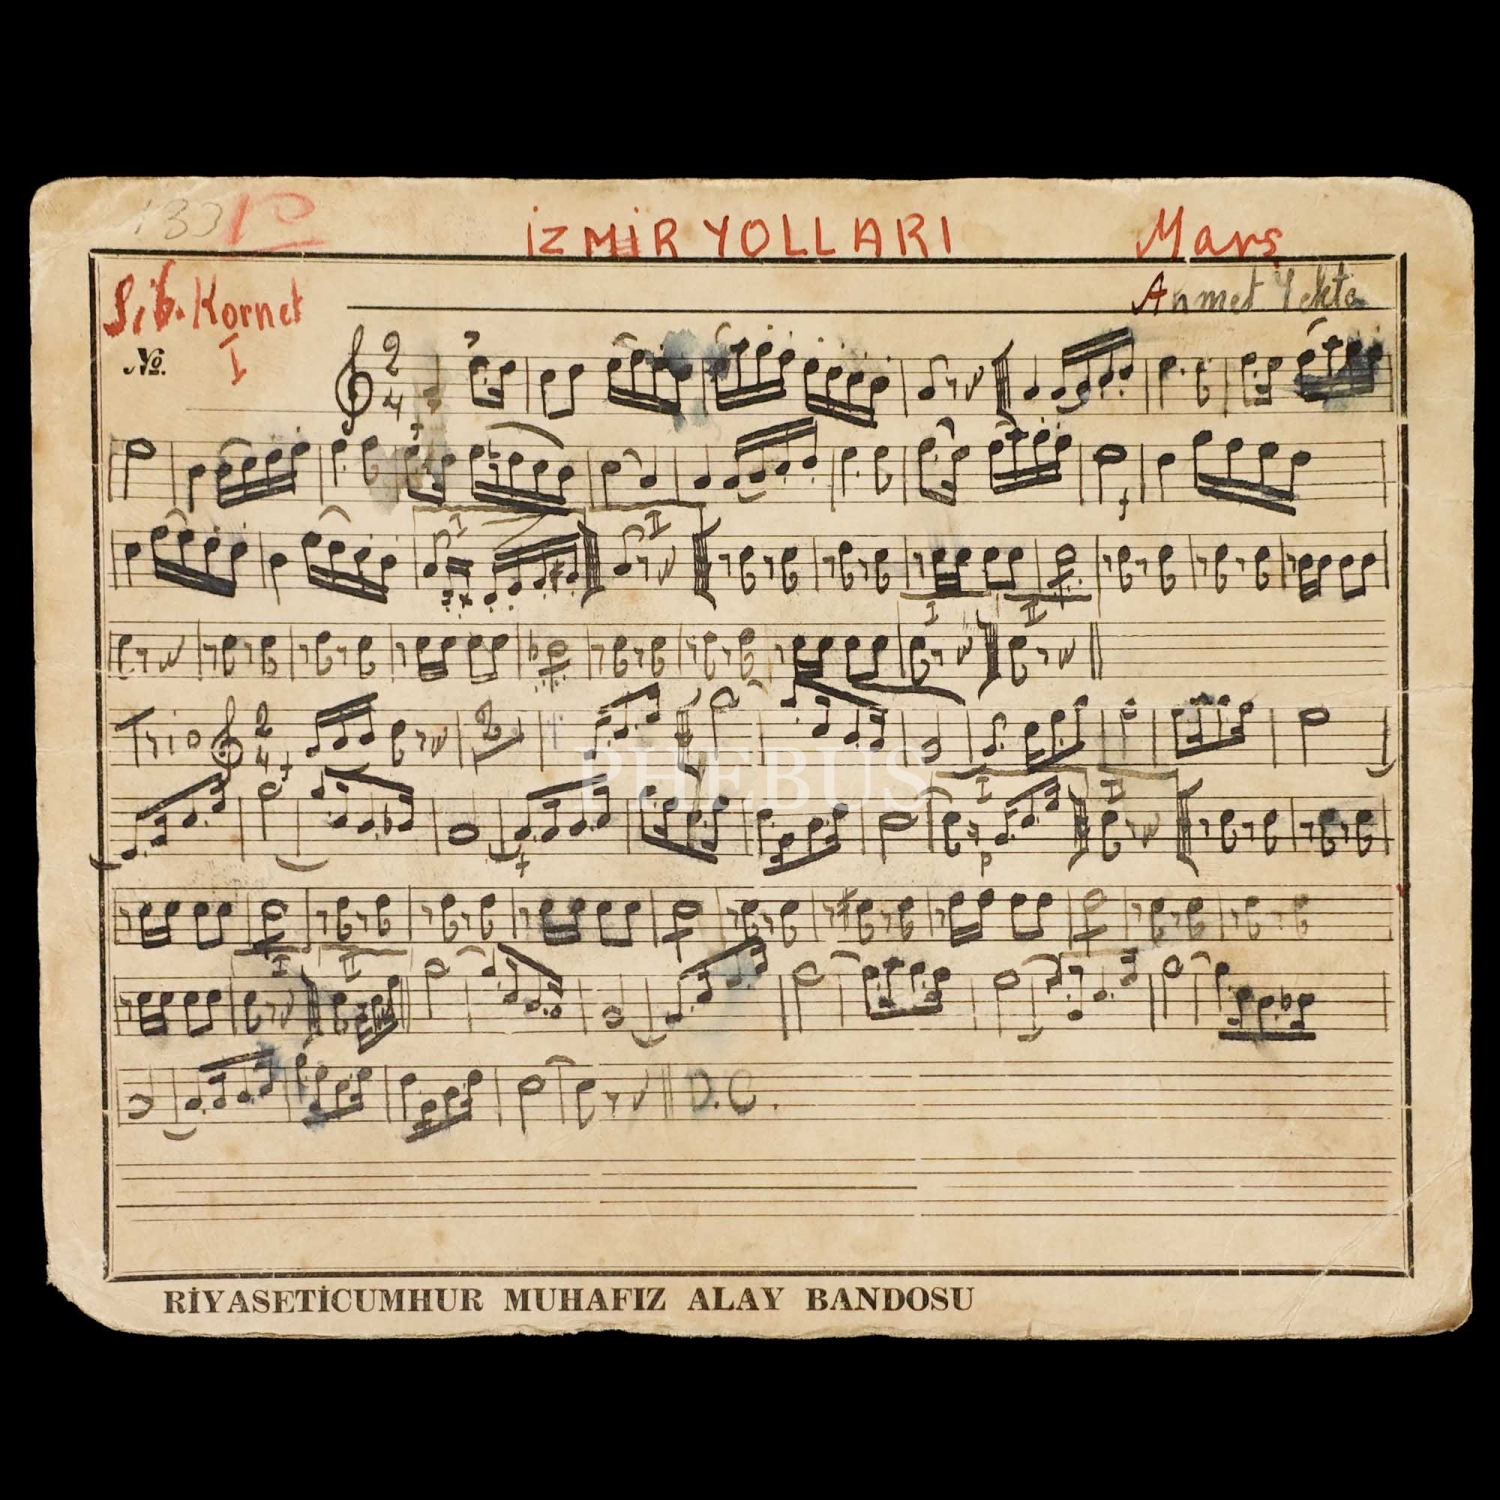 133 10
İZMİR YOLLARI Marş
S.b. Kornet Ahmet Yekta
No. I
2
4
I I
I II
Trio 2
4
PHEBUS
I II
p
I II
D.C.
RİYASETİCUMHUR MUHAFIZ ALAY BANDOSU